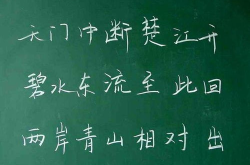 天门中断楚江开
碧水东流至此回
两岸青山相对出